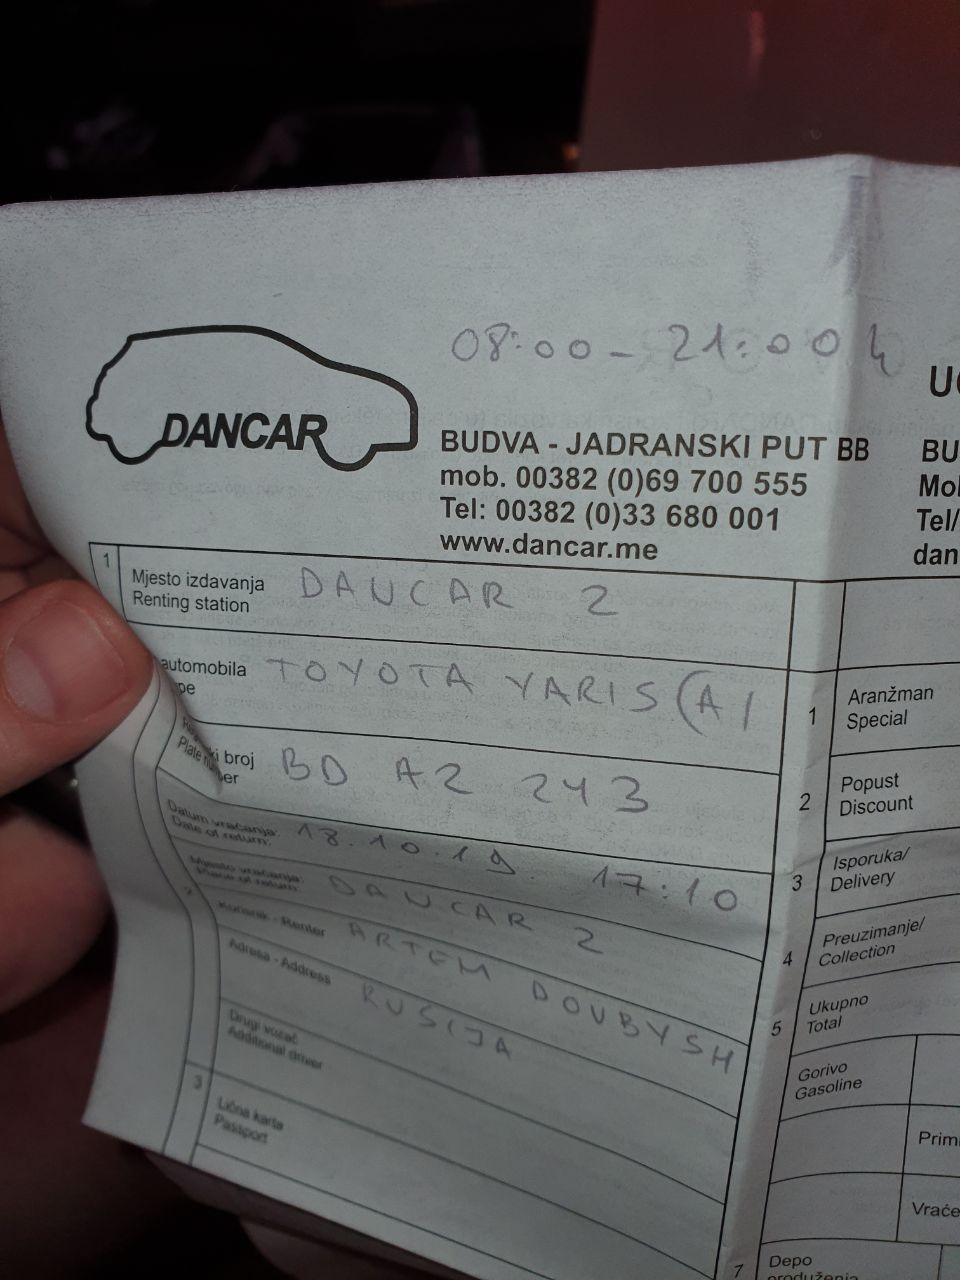 08:00 - 21:00 h
DANCAR
BUDVA - JADRANSKI PUT BB
mob. 00382 (0)69 700 555
Tel: 00382 (0)33 680 001
www.dancar.me
UG
BU
Mol
Tel/
dan
1
Mjesto izdavanja DANCAR 2
Renting station
automobila TOYOTA YARIS (A)
pe
ki broj BD AZ 243
Plate number
Datum vraćanja: 18.10.19. 17:10
Date of return:
Mjesto vraćanja: DANCAR 2
Place of return:
2
Korisnik - Renter ARTEM DOUBYSH
Adresa - Address RUSIJA
Drugi vozač
Additional driver
3
Lična karta
Passport
1
Aranžman
Special
2
Popust
Discount
3
Isporuka/
Delivery
4
Preuzimanje/
Collection
5
Ukupno
Total
Gorivo
Gasoline
Prim
Vraće
7
Depo
produženja